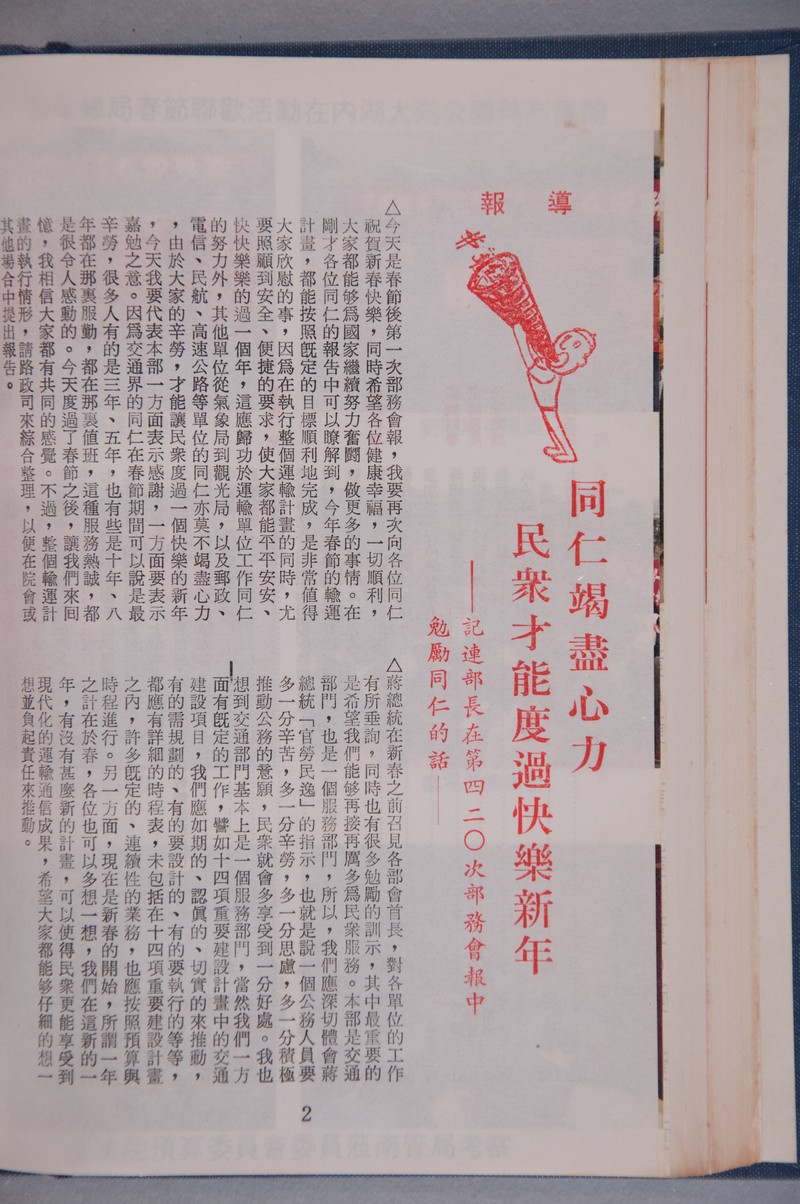 報導
同仁竭盡心力
民衆才能度過快樂新年
——記連部長在第四二〇次部務會報中
勉勵同仁的話——
△今天是春節後第一次部務會報，我要再次向各位同仁
祝賀新春快樂，同時希望各位健康幸福，一切順利，
大家都能够爲國家繼續努力奮鬪，做更多的事情。在
剛才各位同仁的報告中可以瞭解到，今年春節的輸運
計畫，都能按照既定的目標順利地完成，是非常值得
大家欣慰的事，因爲在執行整個運輸計畫的同時，尤
要照顧到安全、便捷的要求，使大家都能平平安安、
快快樂樂的過一個年，這應歸功於運輸單位工作同仁
的努力外，其他單位從氣象局到觀光局，以及郵政、
電信、民航、高速公路等單位的同仁亦莫不竭盡心力
，由於大家的辛勞，才能讓民衆度過一個快樂的新年
，今天我要代表本部一方面表示感謝，一方面要表示
嘉勉之意。因爲交通界的同仁在春節期間可以說是最
辛勞，很多人有的是三年、五年，也有些是十年、八
年都在那裏服勤，都在那裏值班，這種服務熱誠，都
是很令人感動的。今天度過了春節之後，讓我們來回
憶，我相信大家都有共同的感覺。不過，整個輸運計
畫的執行情形，請路政司來綜合整理，以便在院會或
其他場合中提出報告。
△蔣總統在新春之前召見各部會首長，對各單位的工作
有所垂詢，同時也有很多勉勵的訓示，其中最重要的
是希望我們能够再接再厲多爲民衆服務。本部是交通
部門，也是一個服務部門，所以，我們應深切體會蔣
總統「官勞民逸」的指示，也就是說一個公務人員要
多一分辛苦，多一分辛勞，多一分思慮，多一分積極
推動公務的意願，民衆就會多享受到一分好處。我也
想到交通部門基本上是一個服務部門，當然我們一方
面有既定的工作，譬如十四項重要建設計畫中的交通
建設項目，我們應如期的、認眞的、切實的來推動，
有的需規劃的、有的要設計的、有的要執行的等等，
都應有詳細的時程表，未包括在十四項重要建設計畫
之內，許多既定的、連續性的業務，也應按照預算與
時程進行。另一方面，現在是新春的開始，所謂一年
之計在於春，各位也可以多想一想，我們在這新的一
年，有沒有甚麼新的計畫，可以使得民衆更能享受到
現代化的運輸通信成果，希望大家都能够仔細的想一
想並負起責任來推動。
2